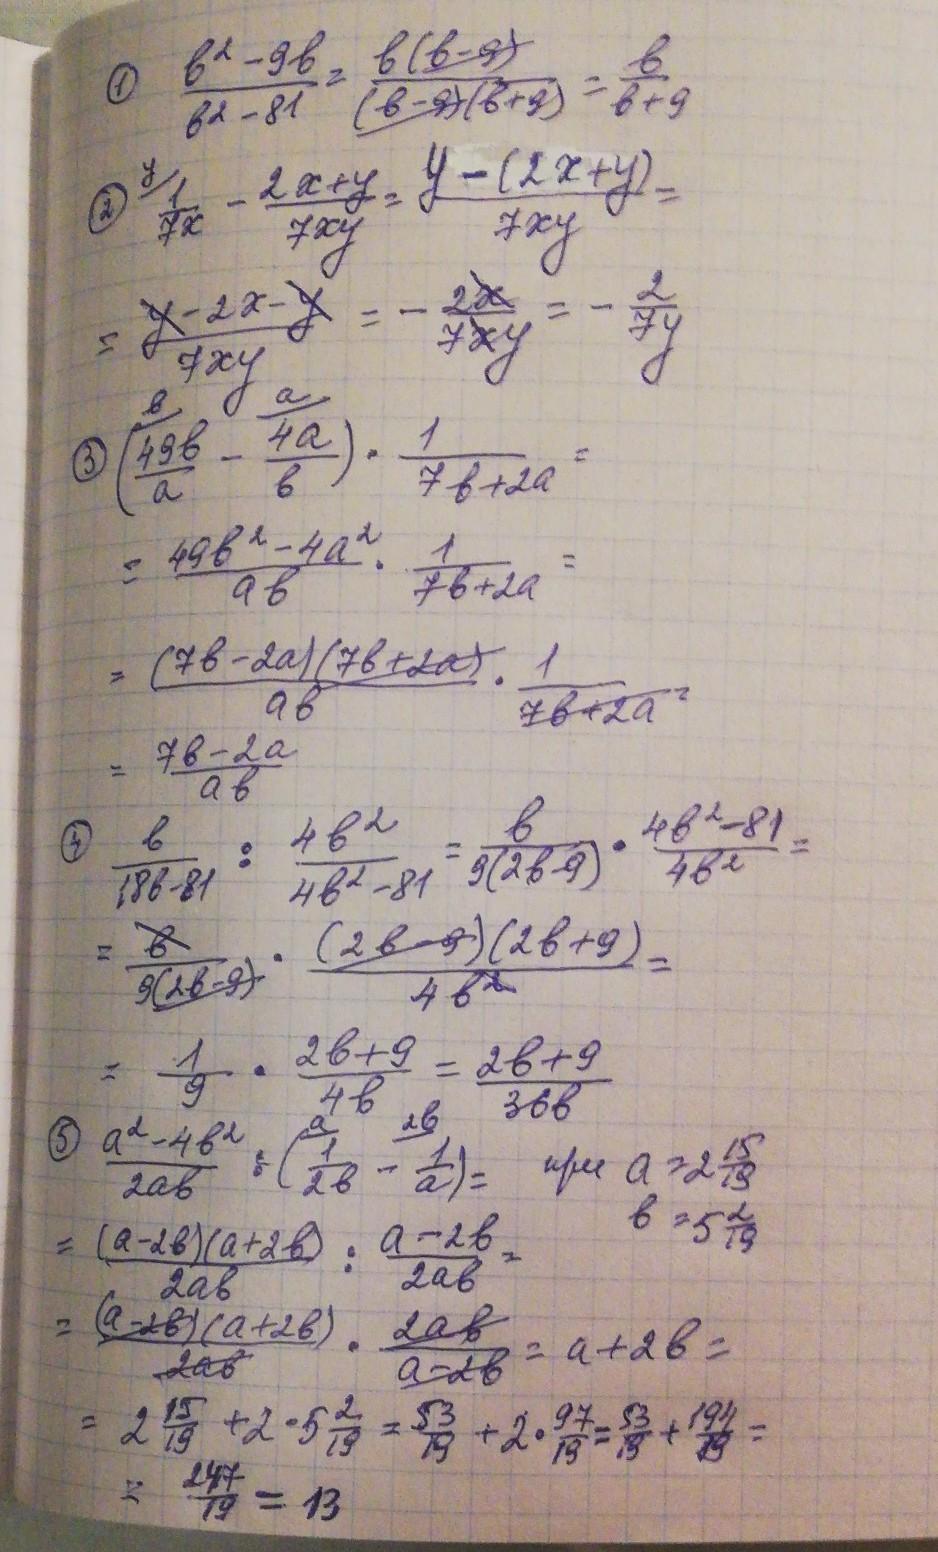 ① (b² - 9b)/(b² - 81) = (b(b-9))/((b-9)(b+9)) = b/(b+9)
② y/ 1/(7x) - (2x+y)/(7xy) = (y-(2x+y))/(7xy) =
= (y-2x-y)/(7xy) = - (2x)/(7xy) = - 2/(7y)
b/ a/
③ ((49b)/a - (4a)/b) · 1/(7b+2a) =
= (49b² - 4a²)/(ab) · 1/(7b+2a) =
= ((7b-2a)(7b+2a))/(ab) · 1/(7b+2a) =
= (7b-2a)/(ab)
④ b/(18b-81) : (4b²)/(4b²-81) = b/(9(2b-9)) · (4b²-81)/(4b²) =
= b/(9(2b-9)) · ((2b-9)(2b+9))/(4b²) =
= 1/9 · (2b+9)/(4b) = (2b+9)/(36b)
a/ 2b/
⑤ (a²-4b²)/(2ab) : (1/(2b) - 1/a) = при a = 2 15/19
b = 5 2/19
= ((a-2b)(a+2b))/(2ab) : (a-2b)/(2ab) =
= ((a-2b)(a+2b))/(2ab) · (2ab)/(a-2b) = a+2b =
= 2 15/19 + 2·5 2/19 = 53/19 + 2·97/19 = 53/19 + 194/19 =
= 247/19 = 13